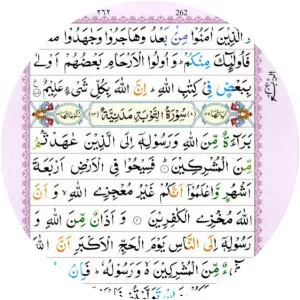 ٢٦٢ 262
الَّذِيْنَ اٰمَنُوْا مِنْۢ بَعْدُ وَهَاجَرُوْا وَجٰهَدُوْا مَعَ
فَاُولٰٓئِكَ مِنْكُمْ ؕ وَاُولُوا الْاَرْحَامِ بَعْضُهُمْ اَوْلٰى
بِبَعْضٍ فِيْ كِتٰبِ اللّٰهِ ؕ اِنَّ اللّٰهَ بِكُلِّ شَيْءٍ عَلِيْمٌ
سُوْرَةُ التَّوْبَةِ مَدَنِيَّةٌ
بَرَآءَةٌ مِّنَ اللّٰهِ وَرَسُوْلِهٖۤ اِلَى الَّذِيْنَ عٰهَدْتُّمْ
مِّنَ الْمُشْرِكِيْنَ ؕ فَسِيْحُوْا فِي الْاَرْضِ اَرْبَعَةَ
اَشْهُرٍ وَّاعْلَمُوْۤا اَنَّكُمْ غَيْرُ مُعْجِزِي اللّٰهِ ۙ وَاَنَّ
اللّٰهَ مُخْزِي الْكٰفِرِيْنَ ۞ وَاَذَانٌ مِّنَ اللّٰهِ وَ
رَسُوْلِهٖۤ اِلَى النَّاسِ يَوْمَ الْحَجِّ الْاَكْبَرِ اَنَّ اللّٰهَ
مِّنَ الْمُشْرِكِيْنَ ۙ۬ وَرَسُوْلُهٗ ؕ فَاِنْ